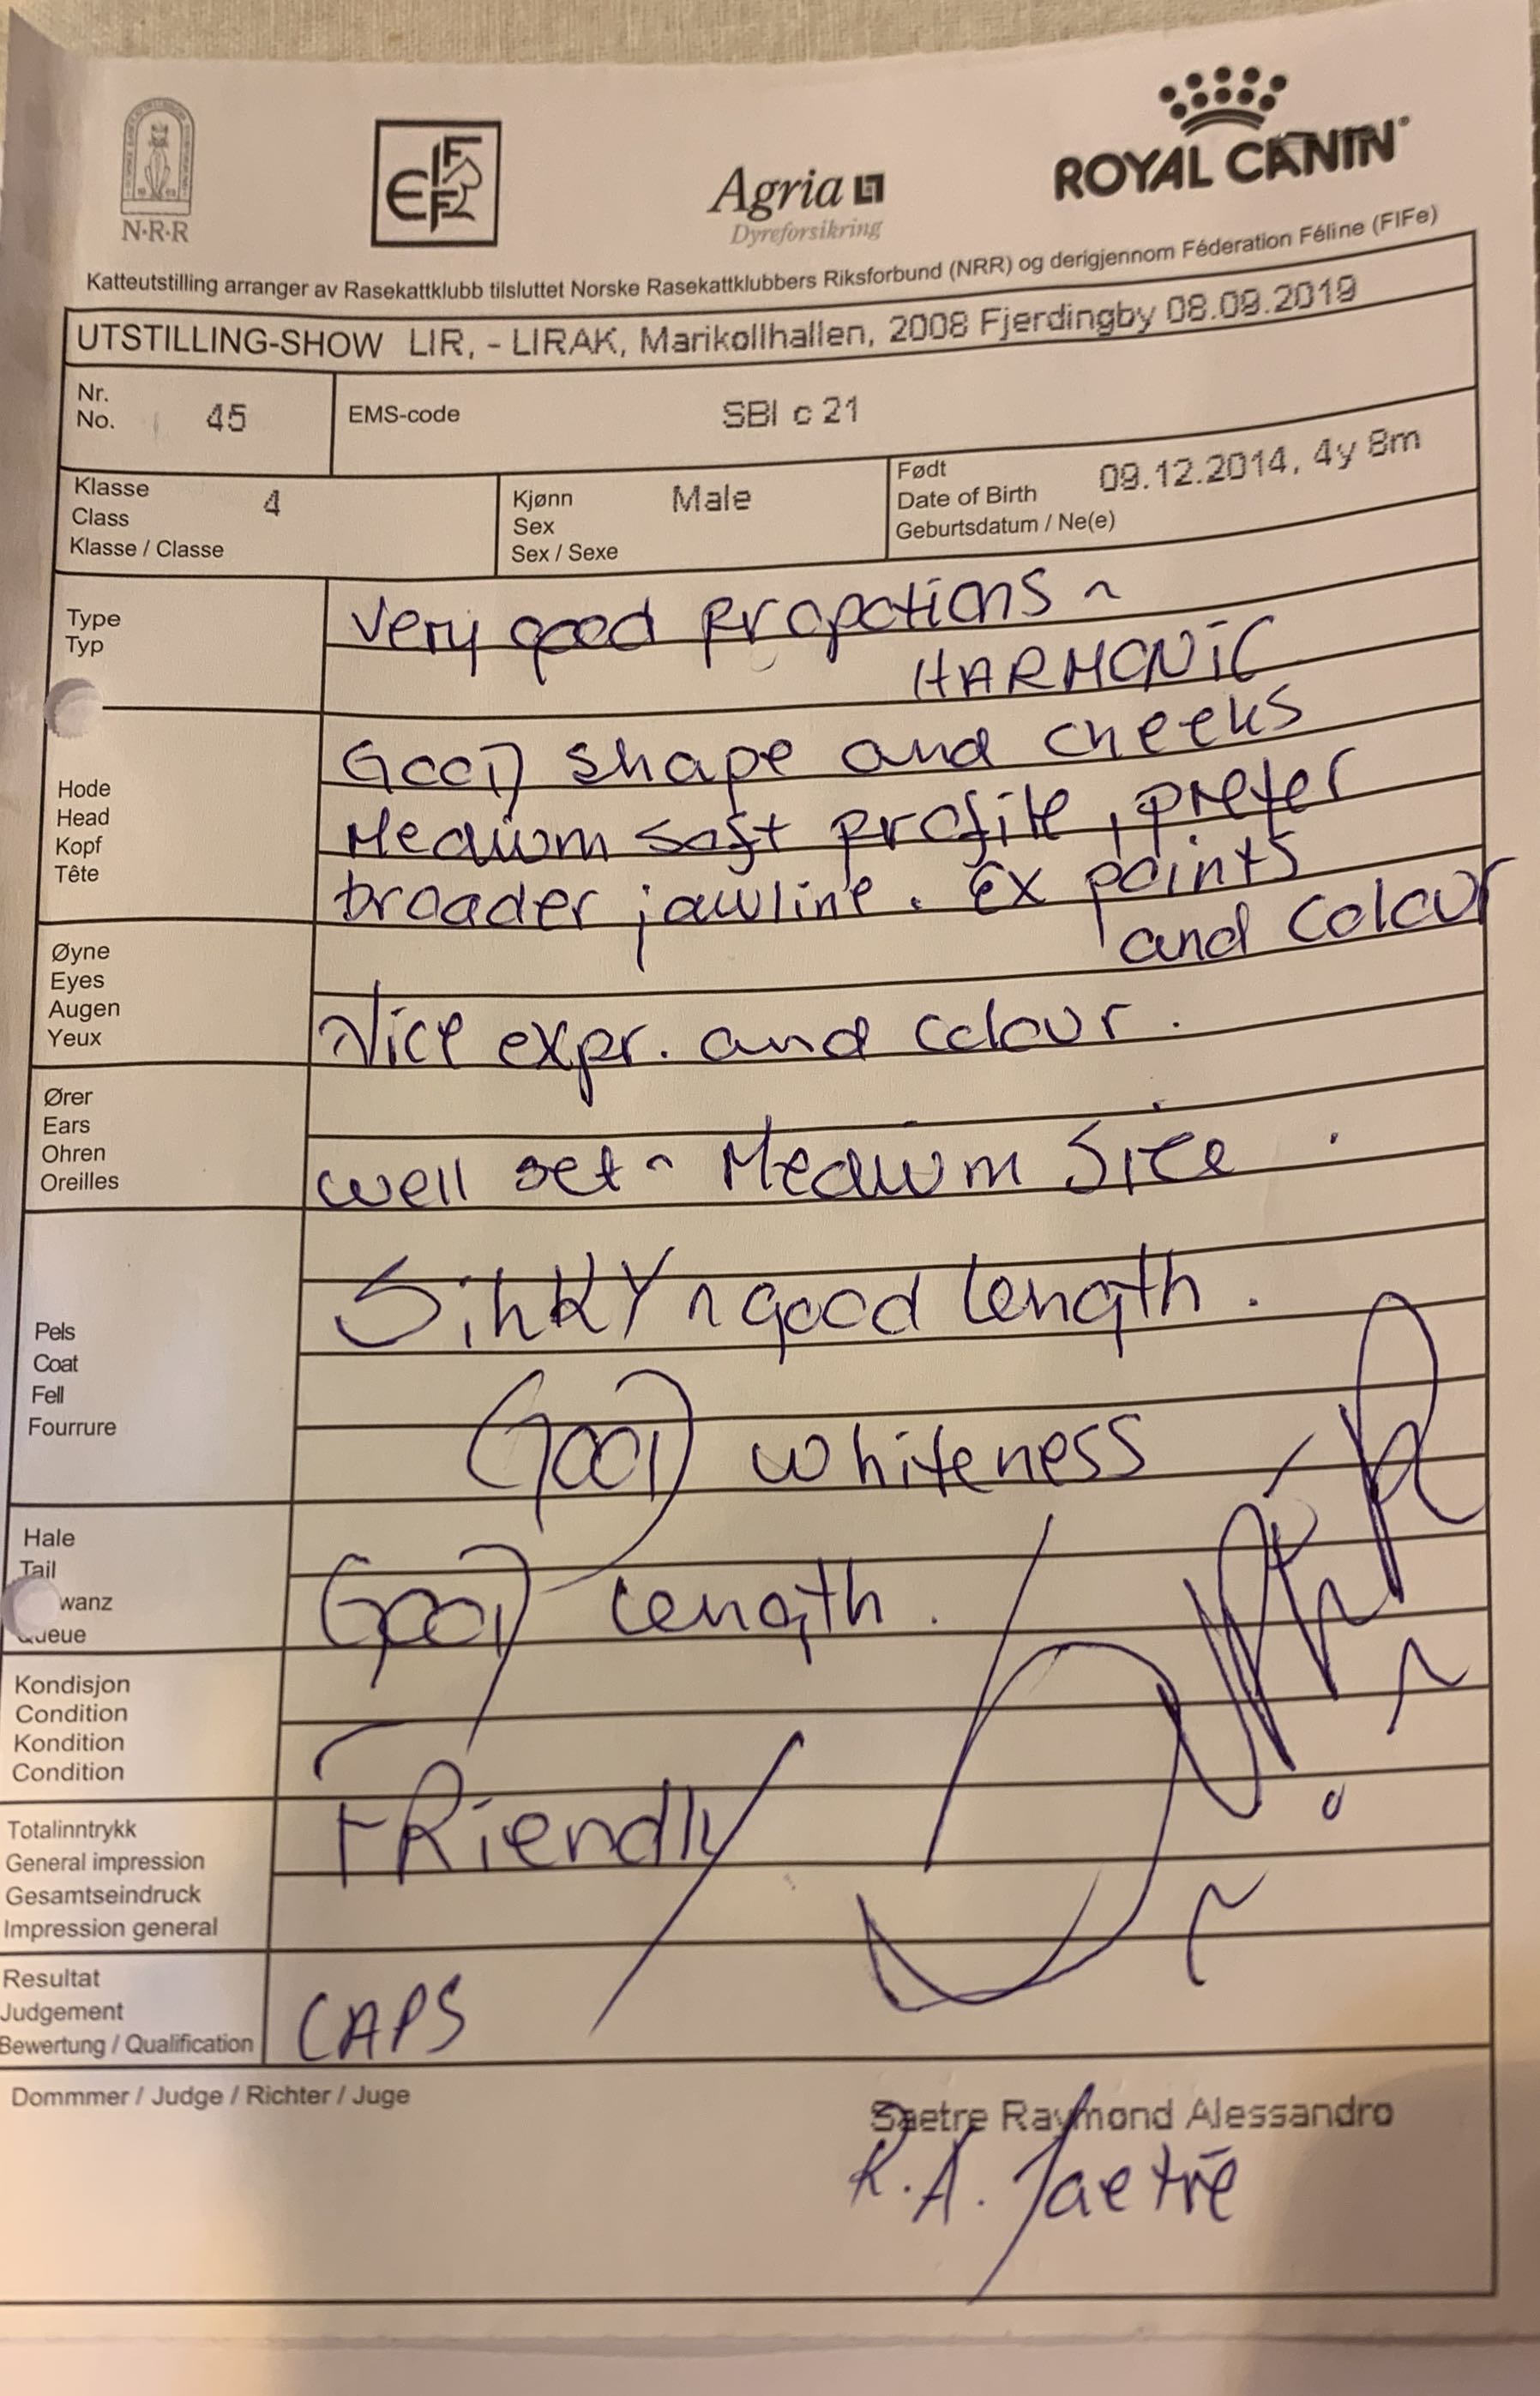 N·R·R
FIFe
Agria
Dyreforsikring
ROYAL CANIN
Katteutstilling arranger av Rasekattklubb tilsluttet Norske Rasekattklubbers Riksforbund (NRR) og derigjennom Féderation Féline (FIFe)
UTSTILLING-SHOW LIR, - LIRAK, Marikollhallen, 2008 Fjerdingby 08.09.2019
Nr.
No. 45
EMS-code SBI c 21
Klasse
Class 4
Klasse / Classe
Kjønn
Sex Male
Sex / Sexe
Født
Date of Birth 09.12.2014, 4y 8m
Geburtsdatum / Ne(e)
Type
Typ
Very good propotions ~
HARMONiC
Hode
Head
Kopf
Tête
GOOD shape and cheeks
Medium soft profile, prefer
broader jawline. Ex points
and Colour
Øyne
Eyes
Augen
Yeux
Nice expr. and colour.
Ører
Ears
Ohren
Oreilles
well set ~ Medium Size.
Pels
Coat
Fell
Fourrure
SilKY ~ good length.
GOOD whiteness
Hale
Tail
wanz
Queue
GOOD length.
Kondisjon
Condition
Kondition
Condition
Totalinntrykk
General impression
Gesamtseindruck
Impression general
FRiendly
Resultat
Judgement
Bewertung / Qualification
CAPS
Dommmer / Judge / Richter / Juge
Saetre Raymond Alessandro
R.A. Saetre